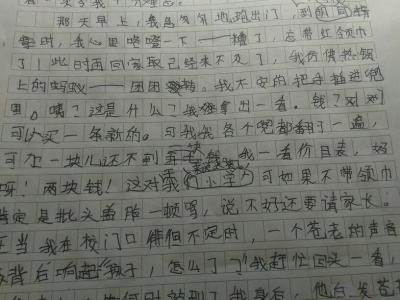 那天早上,我急匆匆地跑出门,到
时,我心里咯噔一下——糟了,忘带红领巾
了!此时再回家取已经来不及了,我仿佛热锅
上的蚂蚁——团团转。我不安的把手插进兜
里。嗯?这是什么?我拿出一看。钱?对对
可以买一条新的。可我找各个兜都翻了一遍,
可加一块儿还不到五块钱,我一看价目表,好
呀!两块钱!这对我们小学 可如果不带领巾
肯定是批头盖脸一顿骂,说不好还要请家长。
正当我在校门口徘徊不定时,一个苍老的声音
背后响起"孩子,怎么了?"我赶忙回头一看,
我身后,他白发苍苍